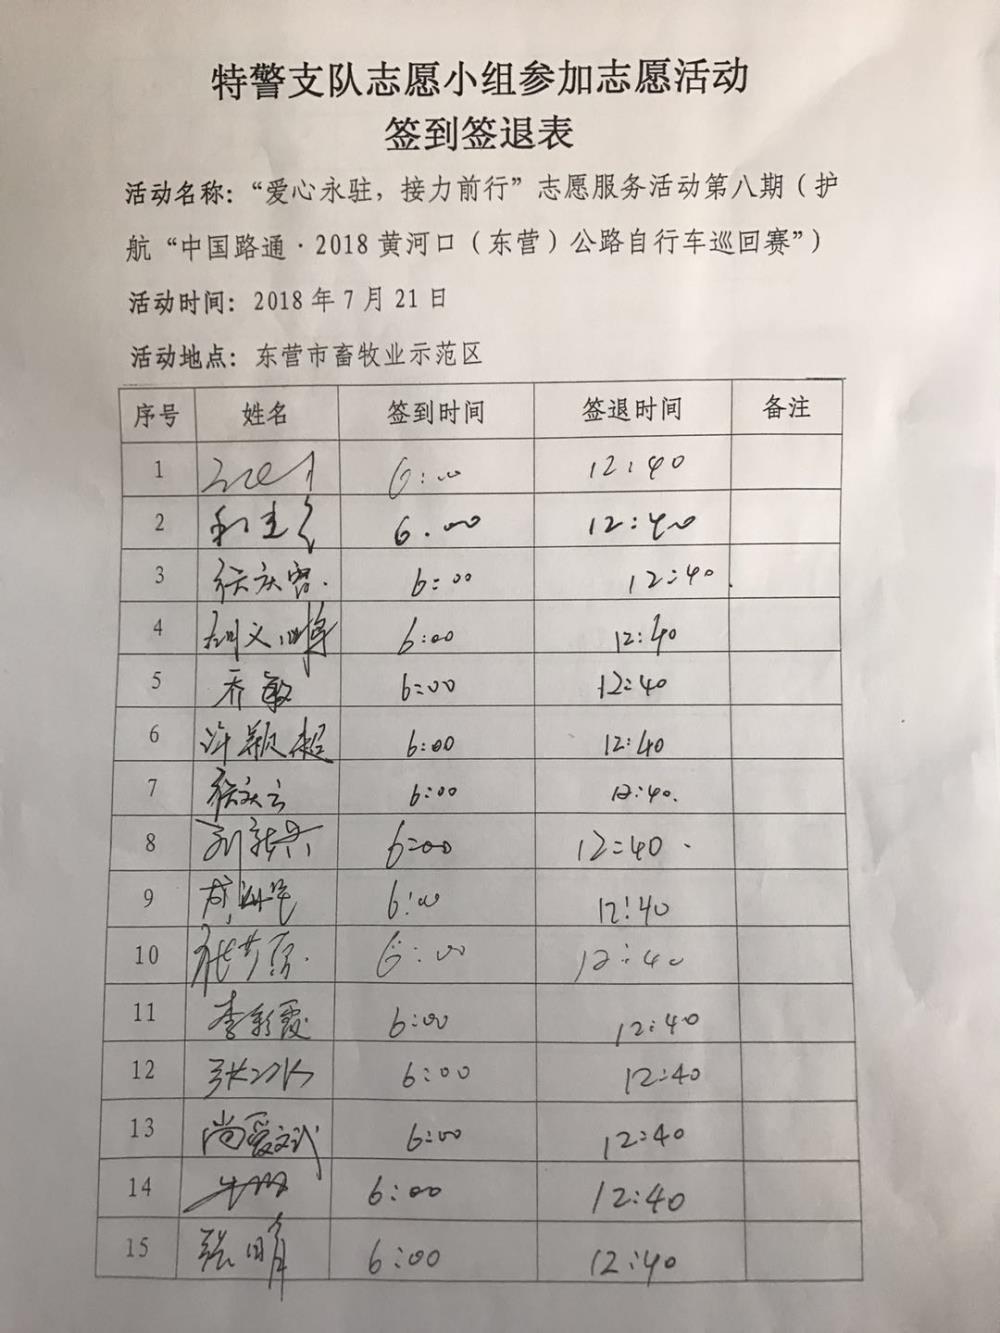 特警支队志愿小组参加志愿活动
签到签退表
活动名称：“爱心永驻，接力前行”志愿服务活动第八期（护
航“中国路通·2018 黄河口（东营）公路自行车巡回赛”）
活动时间：2018 年 7 月 21 日
活动地点：东营市畜牧业示范区
序号 姓名 签到时间 签退时间 备注
1 6:00 12:40
2 6:00 12:40
3 6:00 12:40
4 6:00 12:40
5 乔敏 6:00 12:40
6 许颖超 6:00 12:40
7 6:00 12:40
8 6:00 12:40
9 6:00 12:40
10 6:00 12:40
11 李彩霞 6:00 12:40
12 6:00 12:40
13 尚爱武 6:00 12:40
14 6:00 12:40
15 张明 6:00 12:40